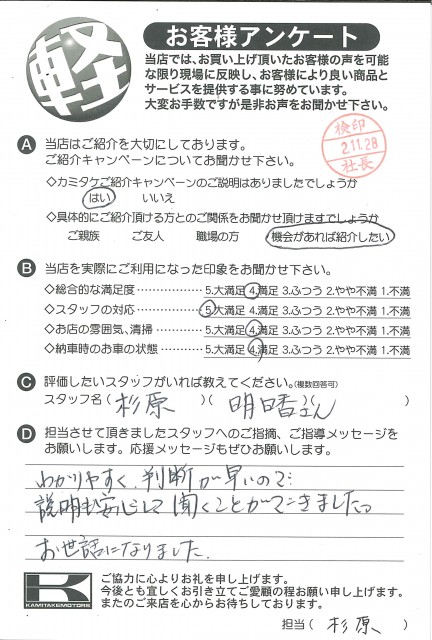 軽
お客様アンケート
当店では、お買い上げ頂いたお客様の声を可能
な限り現場に反映し、お客様により良い商品と
サービスを提供する事に努めています。
大変お手数ですが是非お声をお聞かせ下さい。
検印
2.11.28
社長
A 当店はご紹介を大切にしております。
ご紹介キャンペーンについてお聞かせ下さい。
◇カミタケご紹介キャンペーンのご説明はありましたでしょうか
はい いいえ
◇具体的にご紹介頂ける方とのご関係をお聞かせ頂けますでしょうか
ご親族 ご友人 職場の方 機会があれば紹介したい
B 当店を実際にご利用になった印象をお聞かせ下さい。
◇総合的な満足度……………5.大満足 4.満足 3.ふつう 2.やや不満 1.不満
◇スタッフの対応……………5.大満足 4.満足 3.ふつう 2.やや不満 1.不満
◇お店の雰囲気、清掃………5.大満足 4.満足 3.ふつう 2.やや不満 1.不満
◇納車時のお車の状態………5.大満足 4.満足 3.ふつう 2.やや不満 1.不満
C 評価したいスタッフがいれば教えてください。(複数回答可)
スタッフ名( 杉原 )( 明日香さん )
D 担当させて頂きましたスタッフへのご指摘、ご指導メッセージを
お願いします。応援メッセージもぜひお願いします。
わかりやすく、判断が早いので
説明も安心して聞くことができました。
お世話になりました。
K
KAMITAKEMOTORS
ご協力に心よりお礼を申し上げます。
今後とも宜しくお引き立てご愛顧の程お願い申し上げます。
またのご来店を心からお待ちしております。
担当( 杉原 )